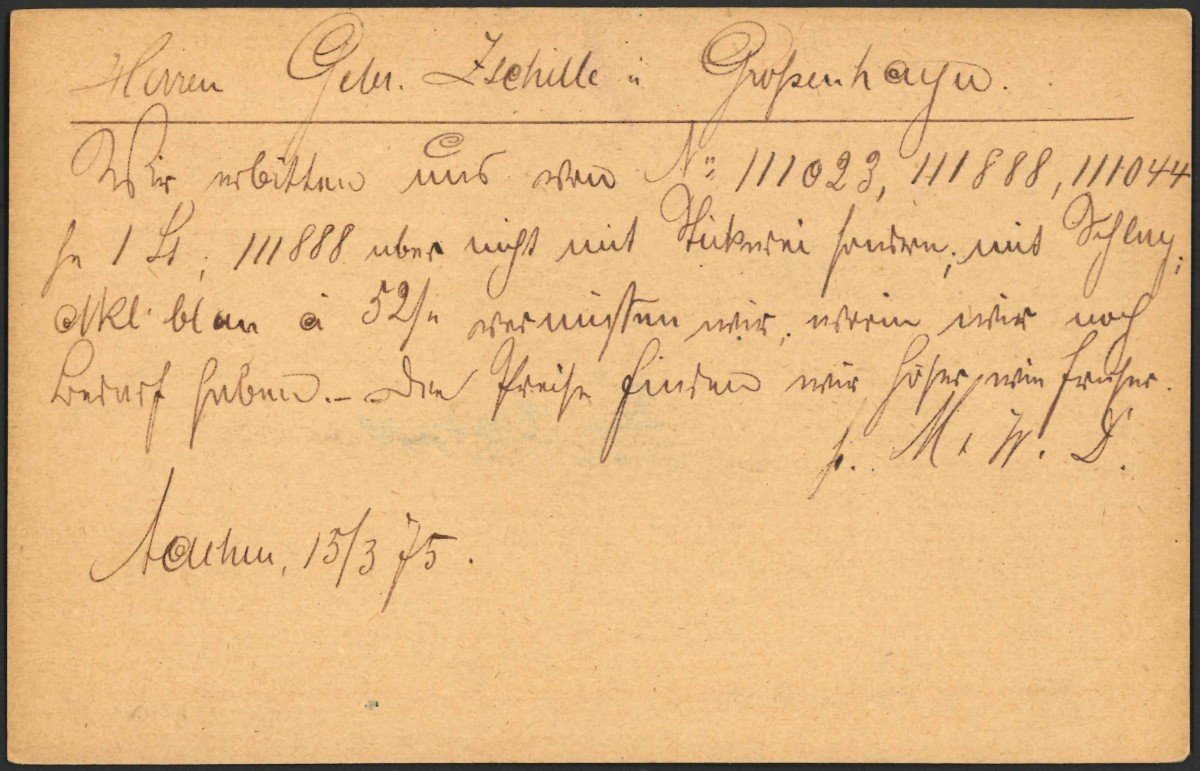 Herren Gebr. Zschille in Großenhayn.
Wir erbitten uns von No 111023, 111888, 111044
je 1 St, 111888 aber nicht mit sondern mit
dkl. blau à 52/ vermissen wir, worin wir noch
Bedarf haben. – Die Preise finden wir höher wie früher.
p. M. W. D.
Aachen, 15/3 75.